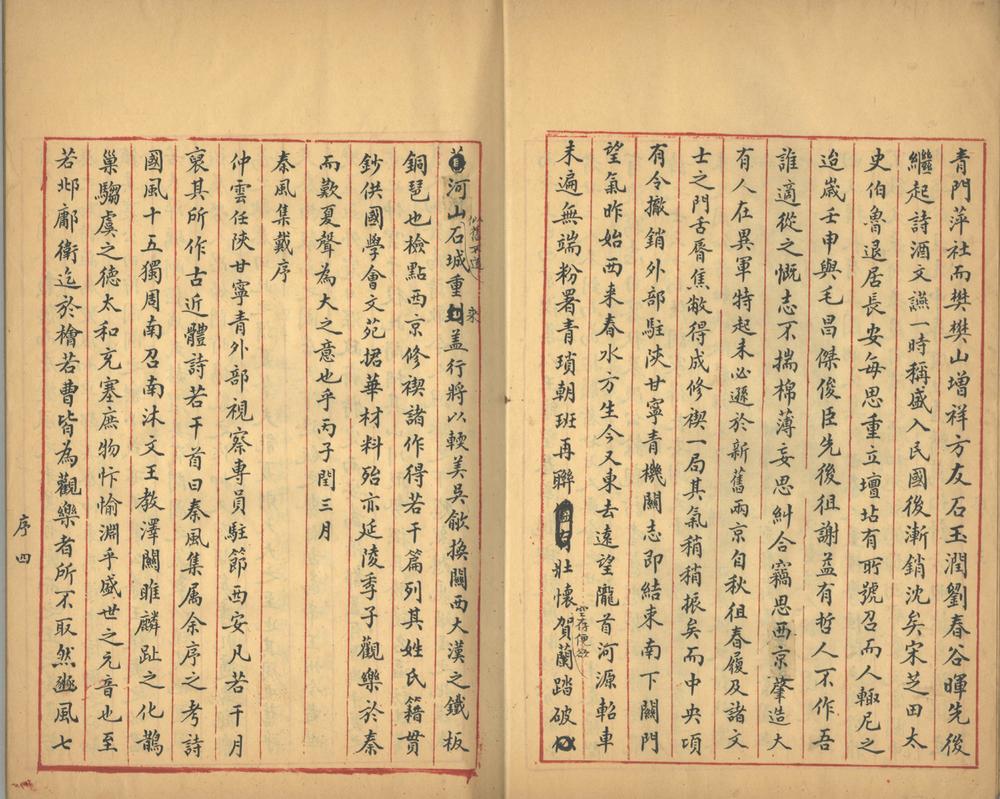 青門萍社而樊樊山增祥方友石玉潤劉春谷暉先後
繼起詩酒文讌一時稱盛入民國後漸銷沈矣宋芝田太
史伯魯退居長安每思重立壇坫有所號召而人輒尼之
迨歲壬申與毛昌傑俊臣先後徂謝益有哲人不作吾
誰適從之慨志不揣棉薄妄思糾合竊思西京肇造大
有人在異軍特起未必遜於新舊兩京自秋徂春履及諸文
士之門舌脣焦敝得成修禊一局其氣稍稍振矣而中央頃
有令撤銷外部駐陝甘寧青機關志即結束南下闕門
望氣昨始西来春水方生今又東去遠望隴首河源軺車
未遍無端粉署青瑣朝班再聯壯懷空存便欲賀蘭踏破
河山似舊不道石城重来盖行將以輭美吳歈換關西大漢之鐵板
銅琶也檢點西京修禊諸作得若干篇列其姓氏籍貫
鈔供國學會文苑捃華材料殆亦延陵季子觀樂於秦
而歎夏聲為大之意也乎丙子閏三月
秦風集戴序
仲雲任陝甘寧青外部視察專員駐節西安凡若干月
裒其所作古近體詩若干首曰秦風集属余序之考詩
國風十五獨周南召南沐文王教澤關雎麟趾之化鵲
巢騶虞之德太和充塞庶物忭愉淵乎盛世之元音也至
若邶鄘衛迄於檜若曹皆為觀樂者所不取然豳風七
序四